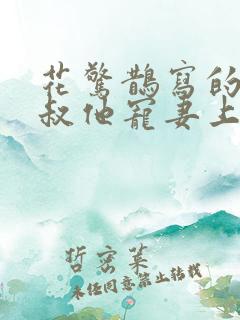 花驚鵲寫的
叔他寵妻上
哲密萊
未经同意禁止转载